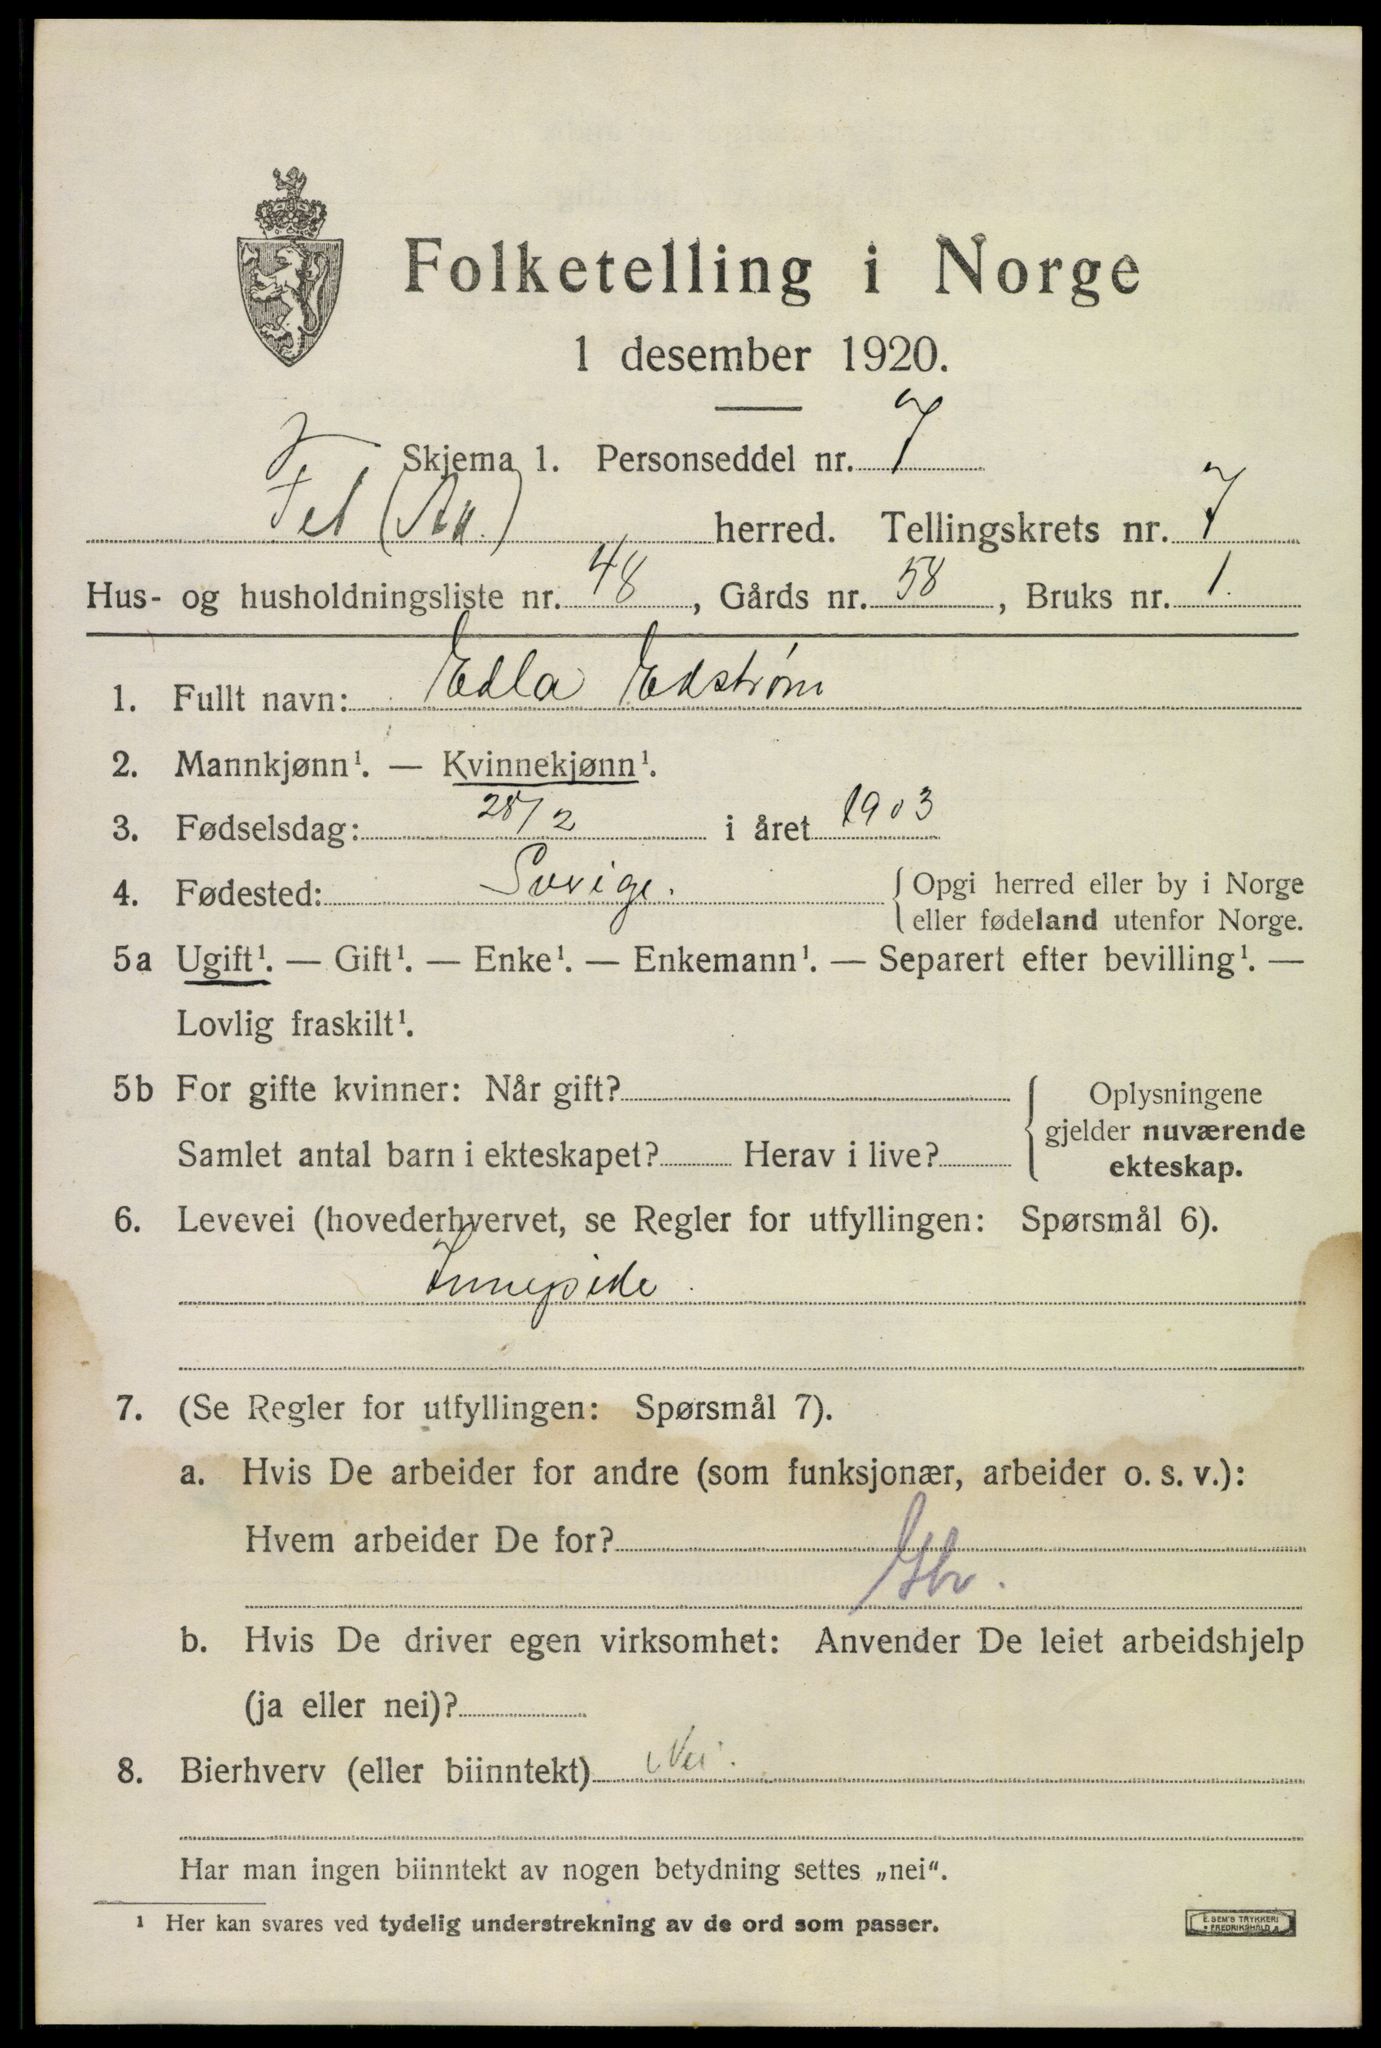 Folketelling i Norge
1 desember 1920.
Skjema 1. Personseddel nr. 7
Fet (Ak.) herred. Tellingskrets nr. 7
Hus- og husholdningsliste nr. 48, Gårds nr. 58, Bruks nr. 1.
1. Fullt navn: Edla Edstrøm
2. Mannkjønn¹. — Kvinnekjønn¹.
3. Fødselsdag: 28/2 i året 1903
4. Fødested: Sverige. { Opgi herred eller by i Norge
eller fødeland utenfor Norge.
5a Ugift¹. — Gift¹. — Enke¹. — Enkemann¹. — Separert efter bevilling¹. —
Lovlig fraskilt¹.
5b For gifte kvinner: Når gift? { Oplysningene
gjelder nuværende
ekteskap.
Samlet antal barn i ekteskapet? Herav i live?
6. Levevei (hovederhvervet, se Regler for utfyllingen: Spørsmål 6).
Innepide.
7. (Se Regler for utfyllingen: Spørsmål 7).
a. Hvis De arbeider for andre (som funksjonær, arbeider o. s. v.):
Hvem arbeider De for?
b. Hvis De driver egen virksomhet: Anvender De leiet arbeidshjelp
(ja eller nei)?
8. Bierhverv (eller biinntekt) Nei.
Har man ingen biinntekt av nogen betydning settes „nei".
¹ Her kan svares ved tydelig understrekning av de ord som passer.
E. SEM'S TRYKKERI
FREDRIKSHALD